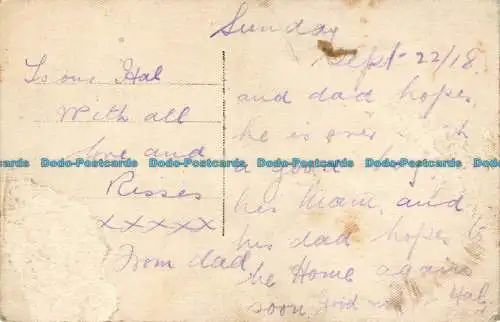 Sunday
Sept 22/18
To our Hal
With all
love and
Kisses
xxxxx
From dad
and dad hopes
he is
a good
his Mam. and
his dad hopes to
be Home again
soon. Hal
Dodo-Postcards Dodo-Postcards Dodo-Postcards Dodo-Postcards Dodo-Postcards Dodo-Postcards